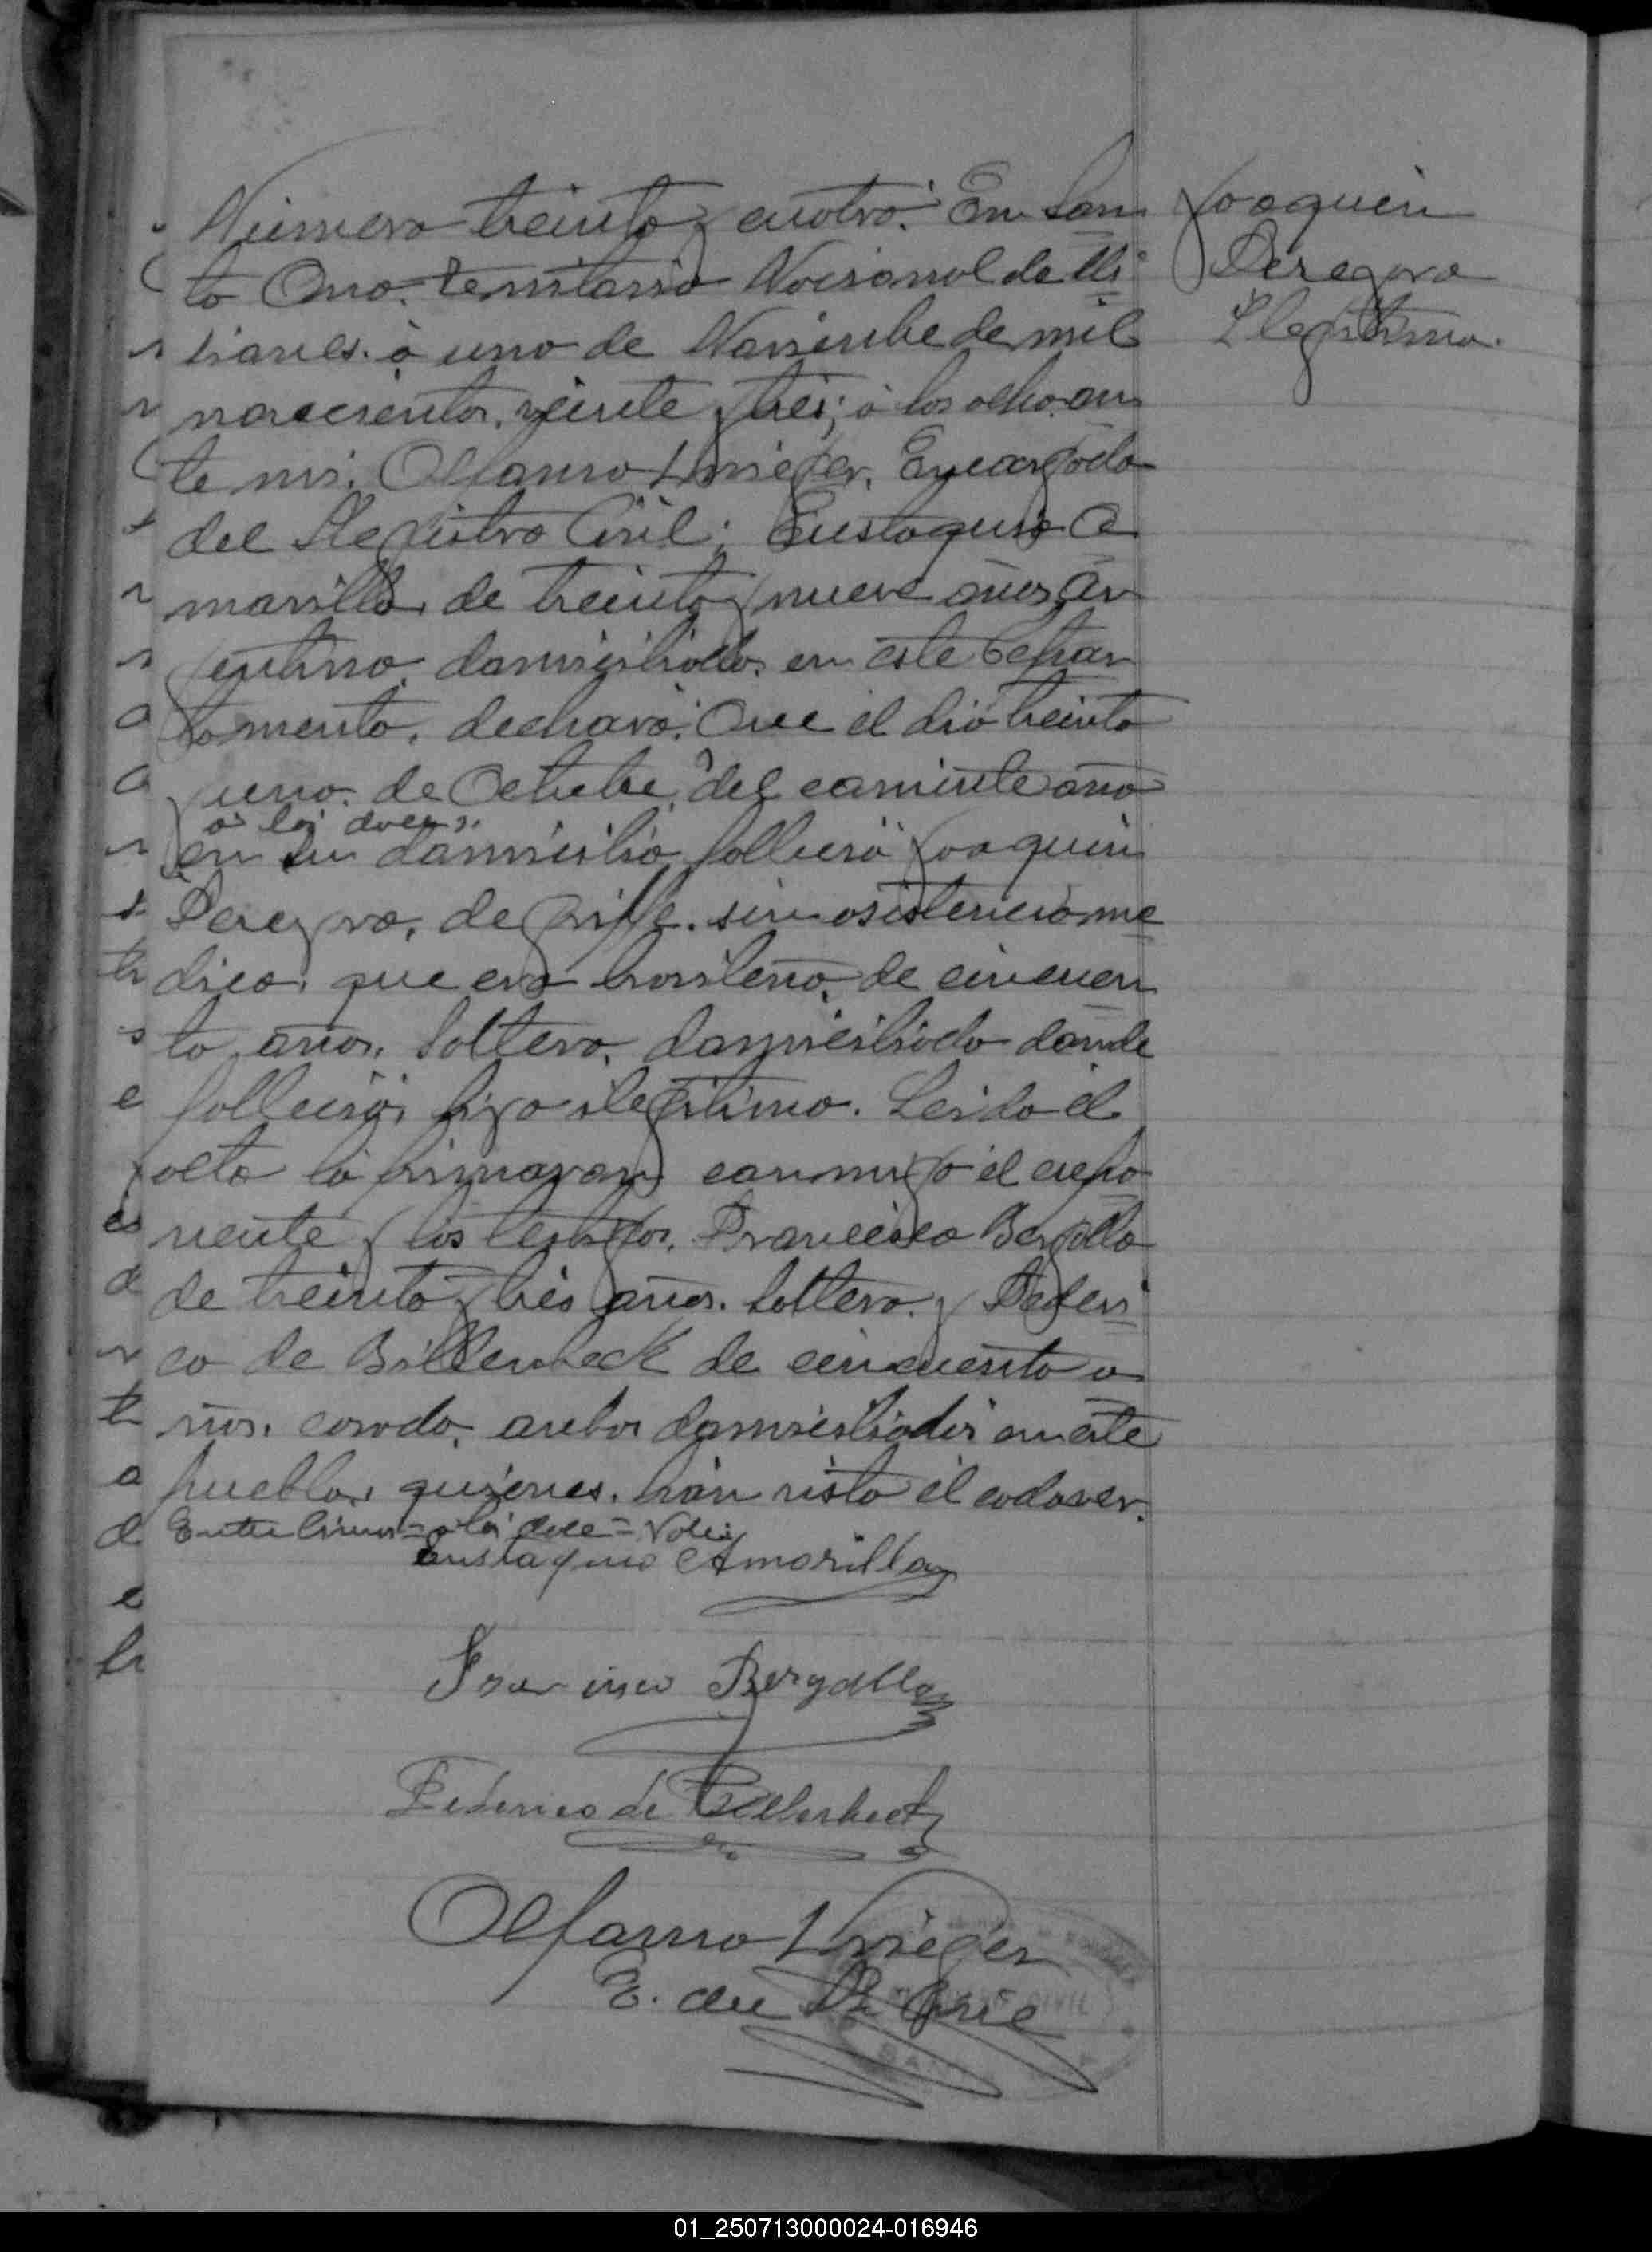 Número treinta y cuatro. En San
ta Ana, territorio Nacional de Mi
siones, à uno de Noviembre de mil
novecientos veinte y tres; à las ocho an
te mi, Alfonso Krieger, Encargado
del Registro Civil; Eustaquio A
marilla, de treinta y nueve años, Ar
gentino, domiciliado, en este Depar
tamento, declaró: Que el dia treinta
y uno, de Octubre, del corriente año
à las doce,
en su domicilio falleció Joaquin
Pereyra, de grippe, sin asistencia me
dica, que era brasileño, de cincuen
ta años, Soltero, domiciliado donde
falleció, hijo ilegitimo. Leida el
acta la firmaron conmigo el expo
nente y los testigos, Francisco Bergallo
de treinta y tres años, Soltero, y Federi
co de Billerbeck de cincuenta a
ños, casado, ambos domiciliados en este
pueblo, quienes, han visto el cadaver.
Entre lineas = a las doce = Vale
Eustaquio Amarilla
Francisco Bergallo
Federico de Billerbeck
Alfonso Krieger
E. del R. Civil
Joaquin
Pereyra
Ilegitimo.
CIVIL
01_250713000024-016946